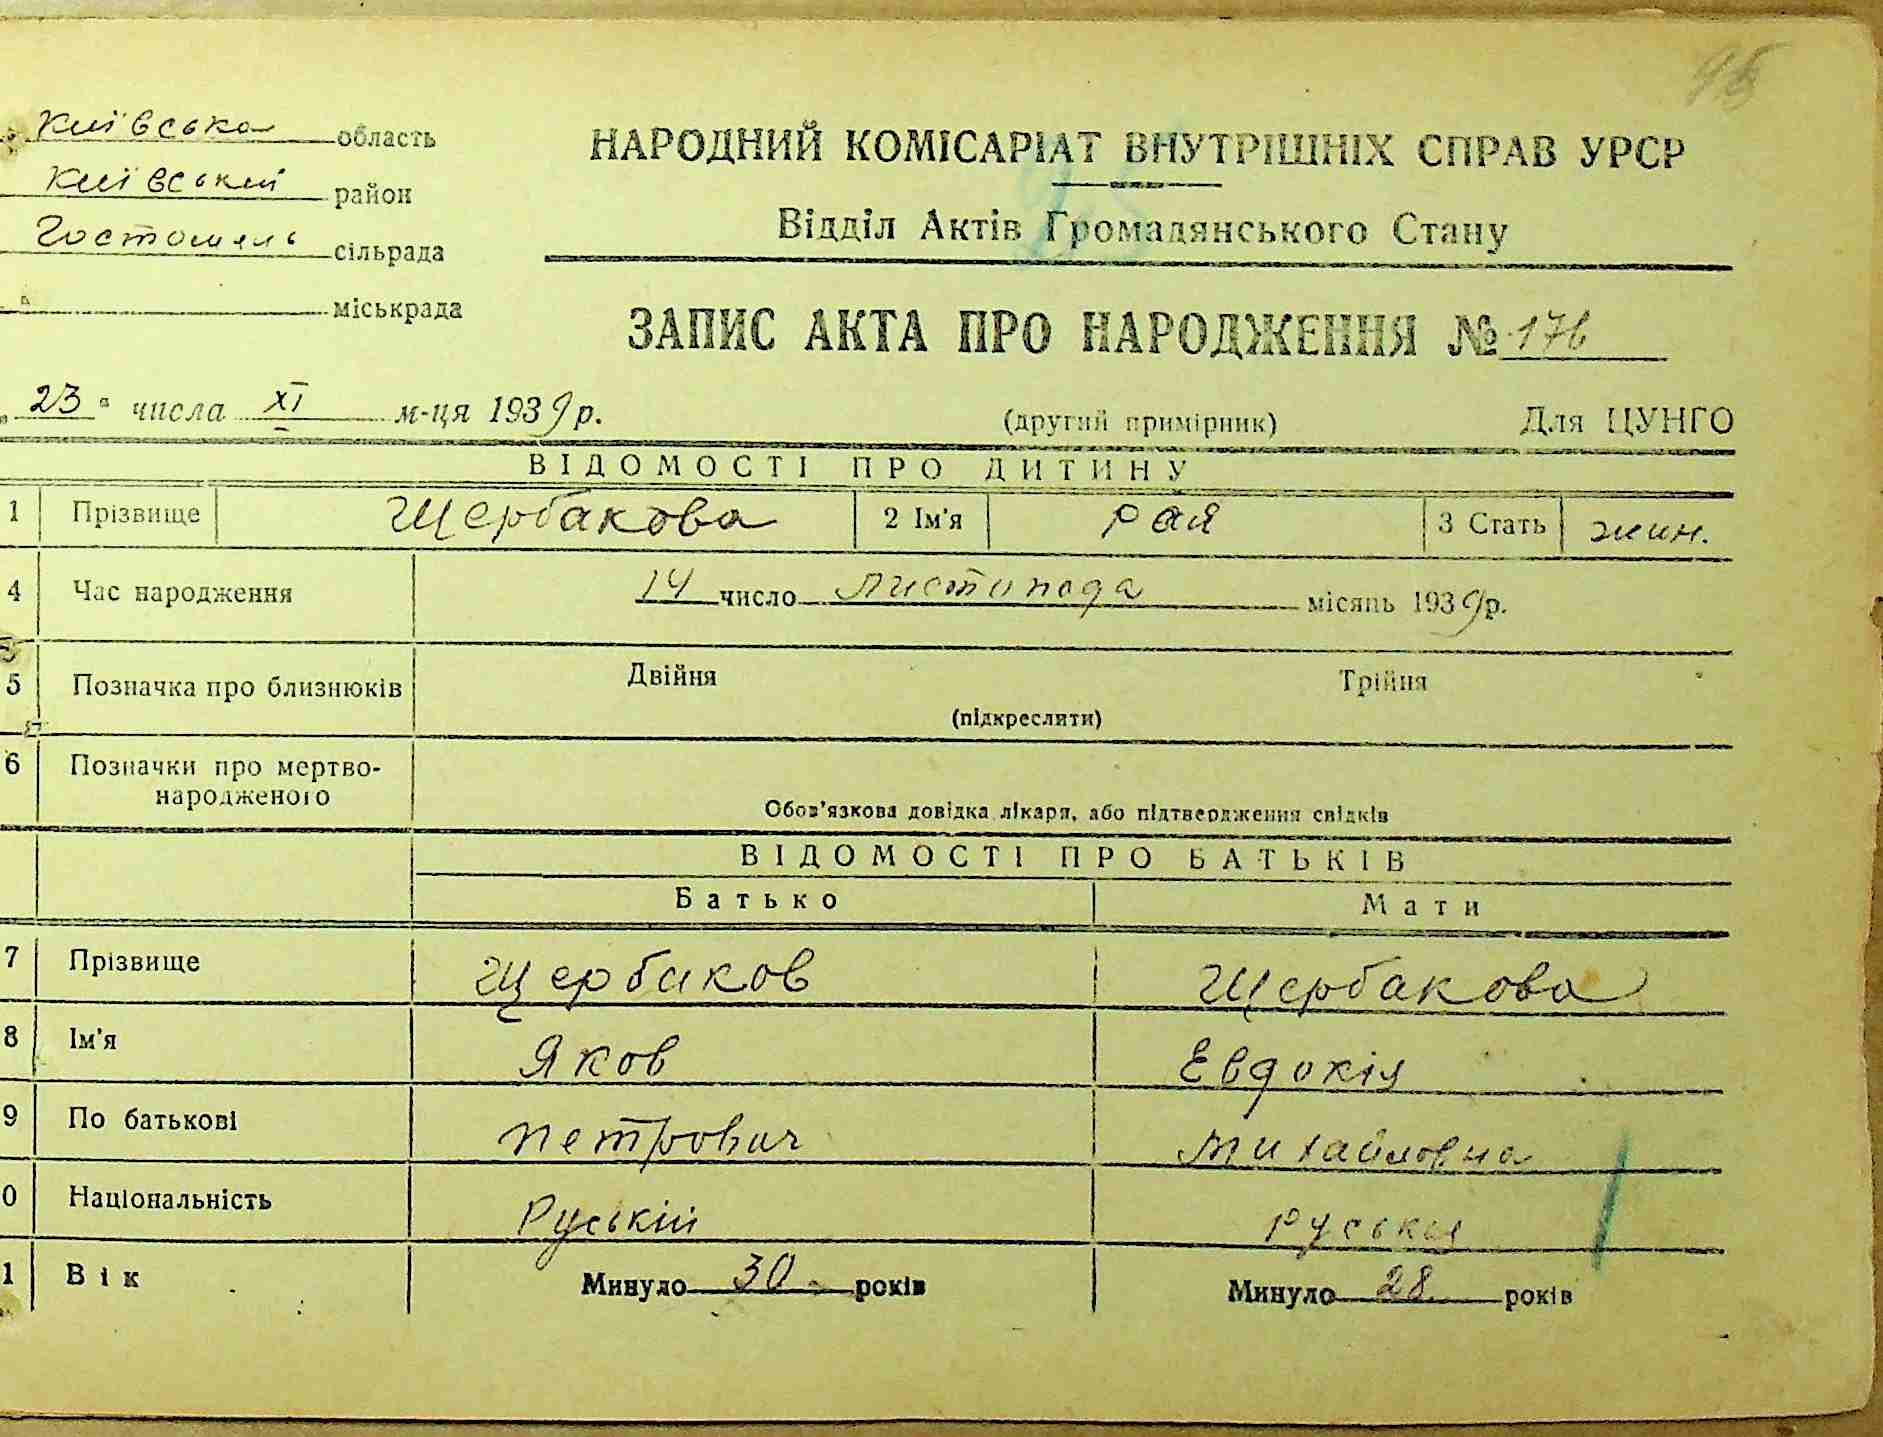 Київська область
Київський район
Гостомель сільрада
міськрада
НАРОДНИЙ КОМІСАРІАТ ВНУТРІШНІХ СПРАВ УРСР
Відділ Актів Громадянського Стану
ЗАПИС АКТА ПРО НАРОДЖЕННЯ № 176
„23" числа XI м-ця 1939 р.
(другий примірник) Для ЦУНГО
ВІДОМОСТІ ПРО ДИТИНУ
1 Прізвище Щербакова 2 Ім'я Рая 3 Стать жин.
4 Час народження 14 число листопада місяць 1939 р.
5 Позначка про близнюків Двійня Трійня
(підкреслити)
6 Позначки про мертво-
народженого
Обов'язкова довідка лікаря, або підтвердження свідків
ВІДОМОСТІ ПРО БАТЬКІВ
Батько Мати
7 Прізвище Щербаков Щербакова
8 Ім'я Яков Евдокія
9 По батькові Петрович Михайловна
0 Національність Руській руська
1 Вік Минуло 30 років Минуло 28 років